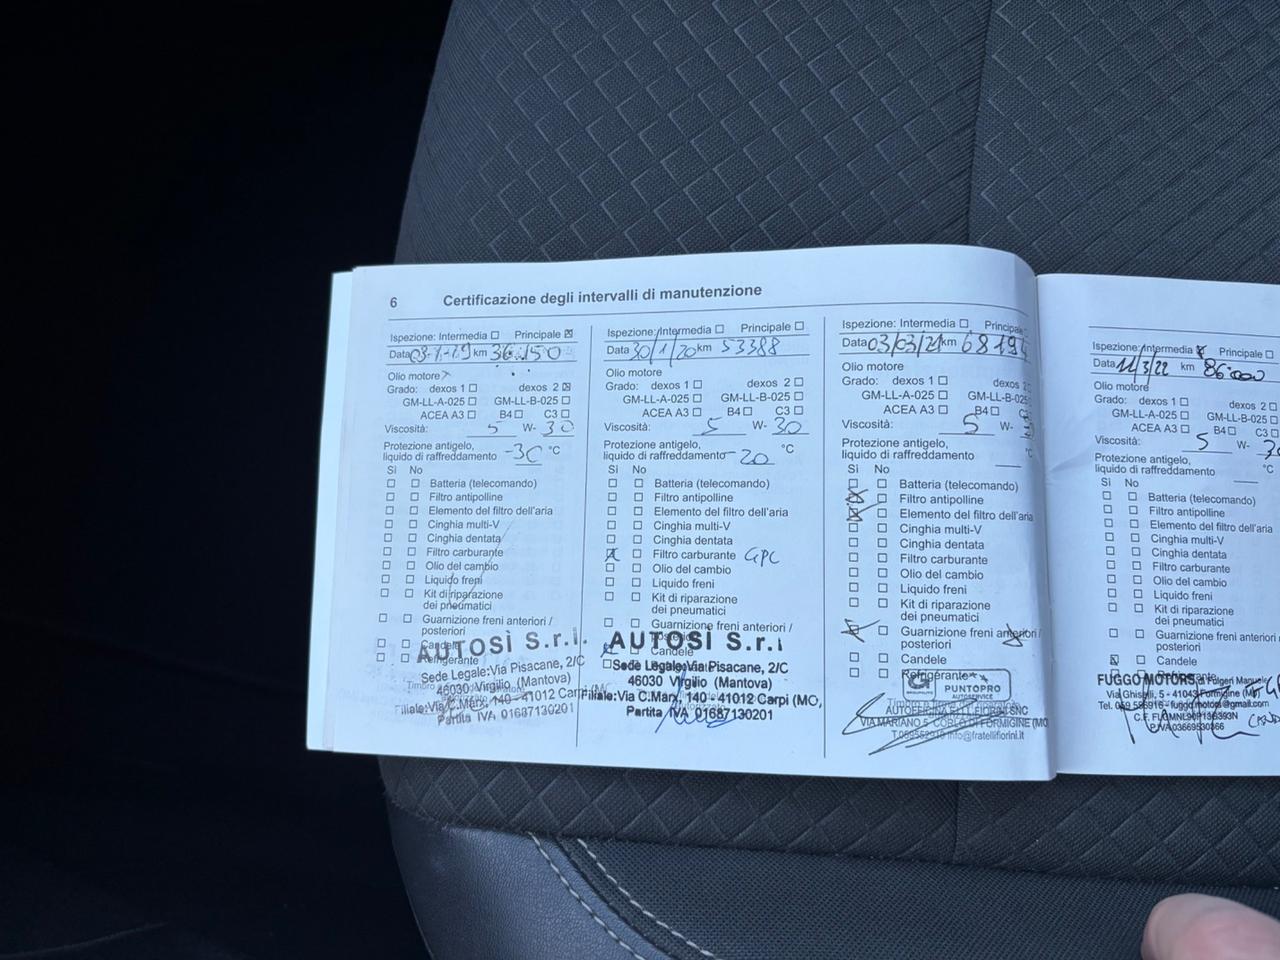 6 Certificazione degli intervalli di manutenzione
Ispezione: Intermedia Principale
Data km 36.150
Olio motore
Grado: dexos 1 dexos 2
GM-LL-A-025 GM-LL-B-025
ACEA A3 B4 C3
Viscosità: 5 W- 30
Protezione antigelo,
liquido di raffreddamento -30 °C
Sì No
Batteria (telecomando)
Filtro antipolline
Elemento del filtro dell'aria
Cinghia multi-V
Cinghia dentata
Filtro carburante
Olio del cambio
Liquido freni
Kit di riparazione
dei pneumatici
Guarnizione freni anteriori /
posteriori
Candele
Refrigerante
AUTOSÌ S.r.l.
Sede Legale: Via Pisacane, 2/C
46030 Virgilio (Mantova)
Filiale: Via C. Marx, 140 - 41012 Carpi (MO
Partita IVA 01687130201
Ispezione: Intermedia Principale
Data 30/1/20 km 53388
Olio motore
Grado: dexos 1 dexos 2
GM-LL-A-025 GM-LL-B-025
ACEA A3 B4 C3
Viscosità: 5 W- 30
Protezione antigelo,
liquido di raffreddamento -20 °C
Sì No
Batteria (telecomando)
Filtro antipolline
Elemento del filtro dell'aria
Cinghia multi-V
Cinghia dentata
Filtro carburante GPL
Olio del cambio
Liquido freni
Kit di riparazione
dei pneumatici
Guarnizione freni anteriori /
posteriori
Candele
AUTOSÌ S.r.l
Sede Legale: Via Pisacane, 2/C
46030 Virgilio (Mantova)
Filiale: Via C. Marx, 140 - 41012 Carpi (MO,
Partita IVA 01687130201
Ispezione: Intermedia Principale
Data 03/03/21 km 68194
Olio motore
Grado: dexos 1 dexos 2
GM-LL-A-025 GM-LL-B-025
ACEA A3 B4 C3
Viscosità: 5 W-
Protezione antigelo,
liquido di raffreddamento °C
Sì No
Batteria (telecomando)
Filtro antipolline
Elemento del filtro dell'aria
Cinghia multi-V
Cinghia dentata
Filtro carburante
Olio del cambio
Liquido freni
Kit di riparazione
dei pneumatici
Guarnizione freni anteriori /
posteriori
Candele
Refrigerante
PUNTOPRO
AUTOSERVICE
AUTOFFICINA F.LLI FIORINI SNC
VIA MARIANO 5 DI FORMIGINE (MO
info@fratellifiorini.it
Ispezione: Intermedia Principale
Data 11/3/22 km 86.000
Olio motore
Grado: dexos 1 dexos 2
GM-LL-A-025 GM-LL-B-025
ACEA A3 B4 C3
Viscosità: 5 W- 30
Protezione antigelo,
liquido di raffreddamento °C
Sì No
Batteria (telecomando)
Filtro antipolline
Elemento del filtro dell'aria
Cinghia multi-V
Cinghia dentata
Filtro carburante
Olio del cambio
Liquido freni
Kit di riparazione
dei pneumatici
Guarnizione freni anteriori
posteriori
Candele
FUGGO MOTORS di Fulgeri Manuele
Via Ghiselli, 5 - 41043 Formigine (MO)
Tel. 059 - fuggomotors@gmail.com
P.IVA 03669530366